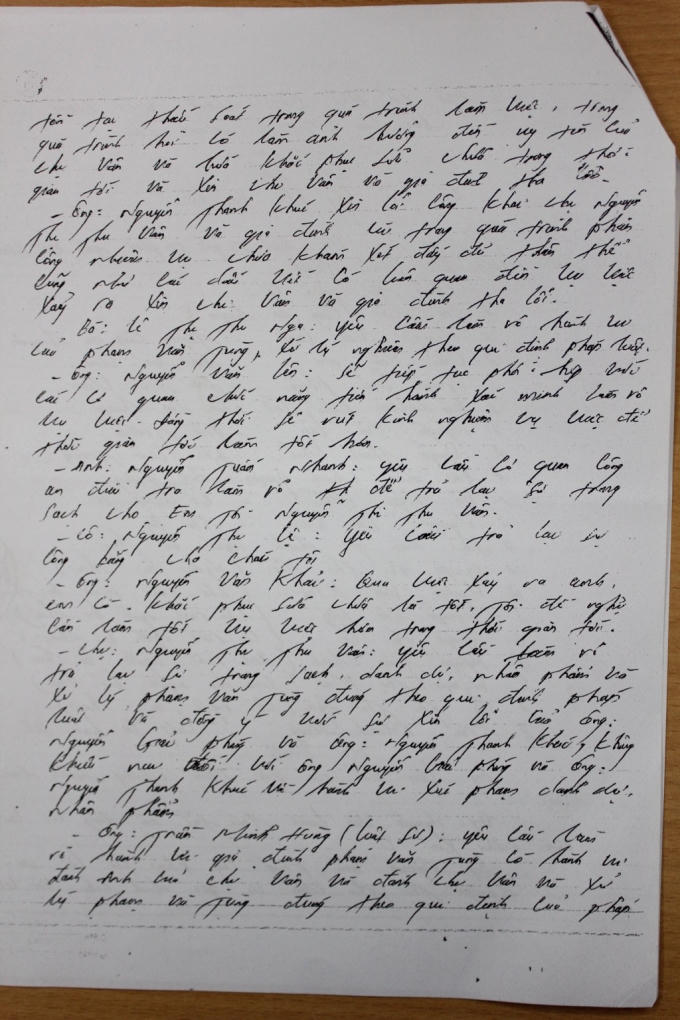 tồn tại thiếu soát trong quá trình làm việc, trong
quá trình hỏi có làm ảnh hưởng đến uy tín của
chị Vân và hứa khắc phục sửa chữa trong thời
gian tới và xin chị Vân và gia đình tha lỗi.
- Ông: Nguyễn Thanh Khuê xin lỗi công khai chị Nguyễn
Thị Thu Vân và gia đình vì trong quá trình phân
công nhiệm vụ chưa khám xét đầy đủ thân thể
cũng như các dấu vết có liên quan đến vụ việc
xảy ra xin chị Vân và gia đình tha lỗi.
Bà: Lê Thị Thu Nga: yêu cầu làm rõ hành vi
của Phạm Văn Tùng, xử lý nghiêm theo qui định pháp luật.
- Ông: Nguyễn Văn : sẽ tiếp tục phối hợp với
các cơ quan chức năng tiến hành xác minh làm rõ
vụ việc. đồng thời sẽ rút kinh nghiệm vụ việc để
thời gian tới làm tốt hơn.
- Anh: Nguyễn Tuấn Nhanh: yêu cầu cơ quan công
an điều tra làm rõ để trả lại sự trong
sạch cho em tôi Nguyễn Thị Thu Vân.
- Cô: Nguyễn Thị Lệ: yêu cầu trả lại sự
công bằng cho cháu tôi
- Ông: Nguyễn Văn Khải: Qua việc xảy ra anh,
em có khắc phục sửa chữa là tốt, tôi đề nghị
cần làm tốt vụ việc hơn trong thời gian tới.
- Chị: Nguyễn Thị Thu Vân: yêu cầu làm rõ
trả lại sự trong sạch, danh dự, nhân phẩm và
xử lý Phạm Văn Tùng đúng theo qui định pháp
luật và đồng ý với sự xin lỗi của ông:
Nguyễn Phong và ông: Nguyễn Thanh Khuê, không
khiếu nại đối với ông Nguyễn Phong và ông:
Nguyễn Thanh Khuê về hành vi xúc phạm danh dự,
nhân phẩm
- Ông: Trần Minh Hùng (luật sư): yêu cầu làm
rõ hành vi gia đình Phạm Văn Tùng có hành vi
đánh chị Vân và đánh chị Vân và xử
lý Phạm Văn Tùng đúng theo qui định của pháp